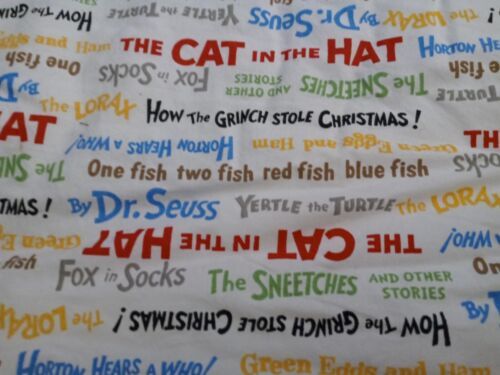 How The GRINCH STOLE YERTLE THE TURTLE By Dr. Seuss The LORAX
Eggs and Ham THE CAT IN THE HAT HORTON HEARS
One fish Fox in Socks The SNEETCHES AND OTHER STORIES TURTLE fish
By The LORAX How The GRINCH STOLE CHRISTMAS!
CAT HORTON HEARS A WHO! Green Eggs and Ham THE
The SNEETCHES One fish two fish red fish blue fish Socks
CHRISTMAS! By Dr. Seuss YERTLE THE TURTLE The LORAX
Green Eggs THE CAT IN THE HAT WHO!
fish Fox in Socks The SNEETCHES AND OTHER STORIES One
The LORAX How The GRINCH STOLE CHRISTMAS! By
HORTON HEARS A WHO! Green Eggs and Ham